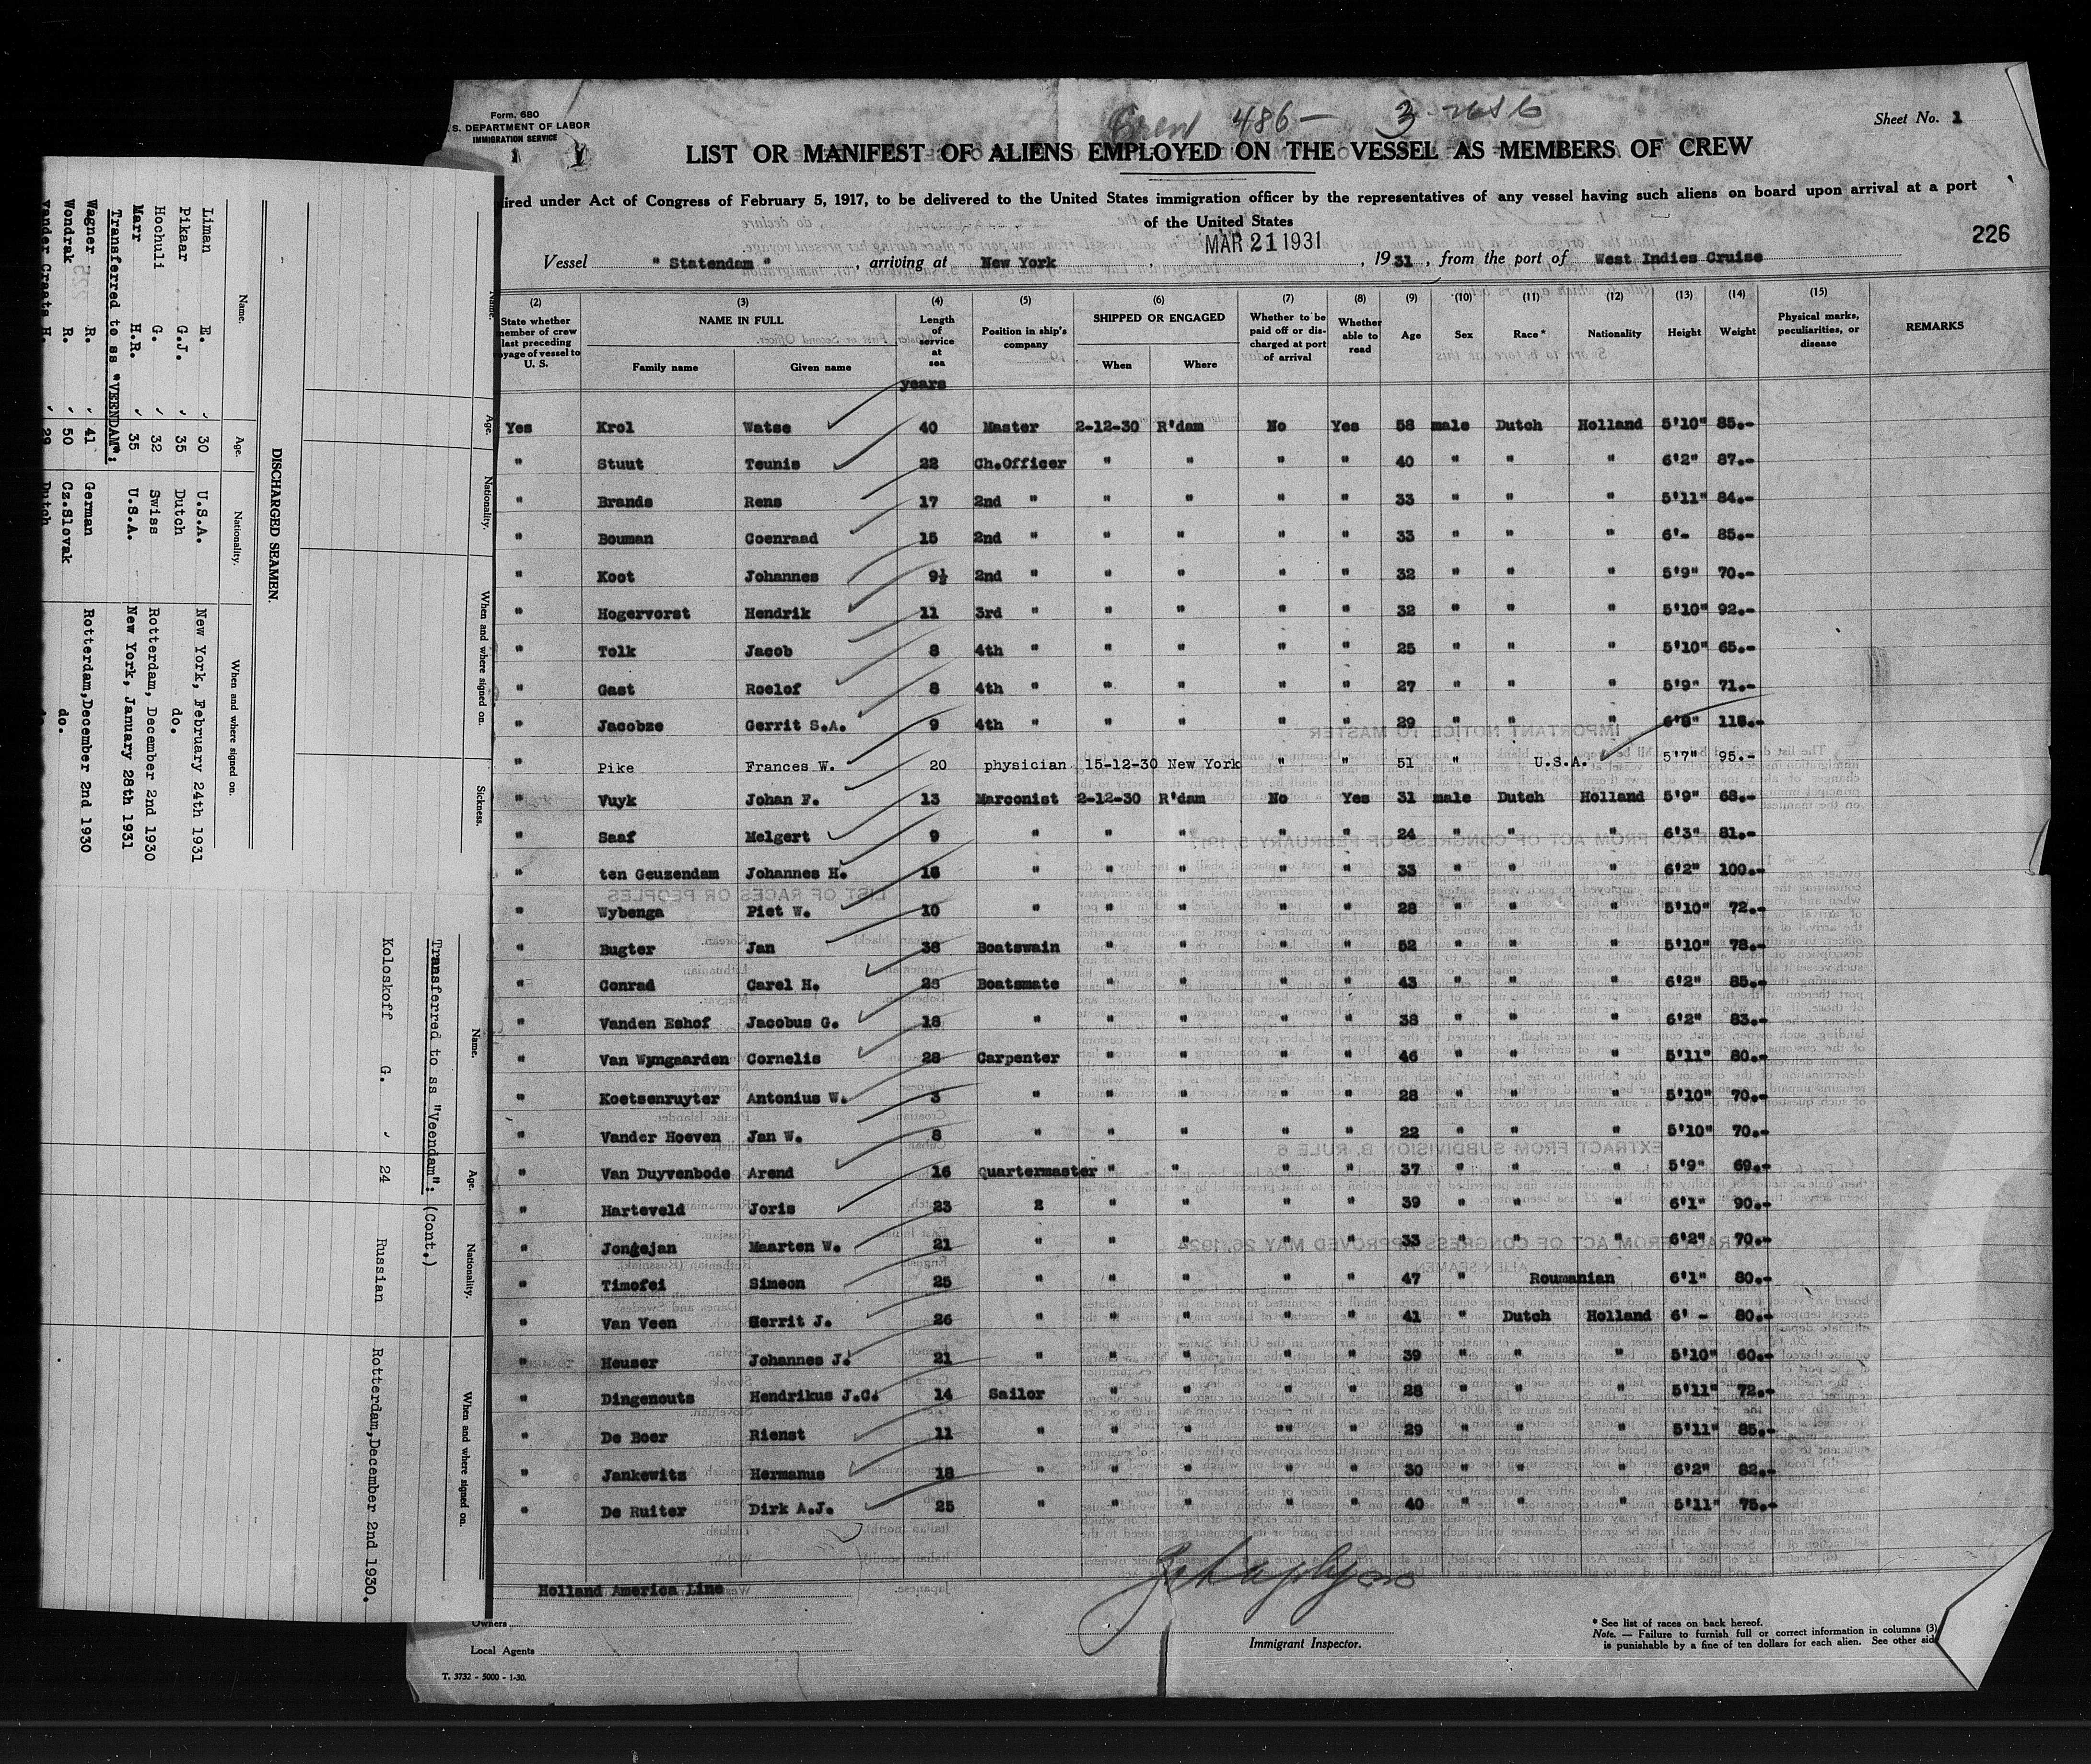 Form. 680
S. DEPARTMENT OF LABOR
IMMIGRATION SERVICE
Crew 486 — 3
Sheet No. 1
LIST OR MANIFEST OF ALIENS EMPLOYED ON THE VESSEL AS MEMBERS OF CREW
ired under Act of Congress of February 5, 1917, to be delivered to the United States immigration officer by the representatives of any vessel having such aliens on board upon arrival at a port
of the United States
MAR 21 1931
226
Vessel " Statendam " , arriving at New York , , 1931 , from the port of West Indies Cruise
(2) (3) (4) (5) (6) (7) (8) (9) (10) (11) (12) (13) (14) (15)
State whether member of crew last preceding voyage of vessel to U. S. NAME IN FULL Family name Given name Length of service at sea Position in ship's company SHIPPED OR ENGAGED When Where Whether to be paid off or discharged at port of arrival Whether able to read Age Sex Race* Nationality Height Weight Physical marks, peculiarities, or disease REMARKS
years
Yes Krol Watse 40 Master 2-12-30 R'dam No Yes 58 male Dutch Holland 5'10" 85.-
" Stuut Teunis 22 Ch.Officer " " " " 40 " " " 6'2" 87.-
" Brands Rens 17 2nd " " " " " 33 " " " 5'11" 84.-
" Bouman Coenraad 15 2nd " " " " " 33 " " " 6'- 85.-
" Koot Johannes 9½ 2nd " " " " " 32 " " " 5'9" 70.-
" Hogervorst Hendrik 11 3rd " " " " " 32 " " " 5'10" 92.-
" Tolk Jacob 8 4th " " " " " 25 " " " 5'10" 65.-
" Gast Roelof 8 4th " " " " " 27 " " " 5'9" 71.-
" Jacobze Gerrit S.A. 9 4th " " " " " 29 " " " 6'8" 118.-
" Pike Frances W. 20 physician 15-12-30 New York " " 51 " U.S.A. 5'7" 95.-
" Vuyk Johan F. 13 Marconist 2-12-30 R'dam No Yes 31 male Dutch Holland 5'9" 68.-
" Saaf Melgert 9 " " " " " 24 " " " 6'3" 81.-
" ten Geuzendam Johannes H. 16 " " " " " 33 " " " 6'2" 100.-
" Wybenga Piet W. 10 " " " " " 28 " " " 5'10" 72.-
" Bugter Jan 38 Boatswain " " " " 52 " " " 5'10" 78.-
" Conrad Carel H. 28 Boatsmate " " " " 43 " " " 6'2" 85.-
" Vanden Eshof Jacobus G. 18 " " " " " 38 " " " 6'2" 83.-
" Van Wyngaarden Cornelis 28 Carpenter " " " " 46 " " " 5'11" 80.-
" Koetsenruyter Antonius W. 3 " " " " " 28 " " " 5'10" 70.-
" Vander Hoeven Jan W. 8 " " " " " 22 " " " 5'10" 70.-
" Van Duyvenbode Arend 16 Quartermaster " " " " 37 " " " 5'9" 69.-
" Harteveld Joris 23 2 " " " " 39 " " " 6'1" 90.-
" Jongejan Maarten W. 21 " " " " " 33 " " " 6'2" 70.-
" Timofei Simeon 25 " " " " " 47 " Roumanian 6'1" 80.-
" Van Veen Gerrit J. 26 " " " " " 41 " Dutch Holland 6' - 80.-
" Heuser Johannes J. 21 " " " " " 39 " " " 5'10" 60.-
" Dingenouts Hendrikus J.C. 14 Sailor " " " " 28 " " " 5'11" 72.-
" De Boer Rienst 11 " " " "" " 29 " " " 5'11" 85.-
" Jankewitz Hermanus 18 " " " " " 30 " " " 6'2" 82.-
" De Ruiter Dirk A.J. 25 " " " " " 40 " " " 5'11" 75.-
Holland America Line
Owners
Local Agents
Immigrant Inspector.
* See list of races on back hereof.
Note. — Failure to furnish full or correct information in columns (3)
is punishable by a fine of ten dollars for each alien. See other sid
T. 3732 - 5000 - 1-30.
DISCHARGED SEAMEN.
Name. Age. Nationality. When and where signed on.
Liman E. 30 U.S.A. New York, February 24th 1931
Pikaar G.J. 35 Dutch do.
Hochuli G. 32 Swiss Rotterdam, December 2nd 1930
Marr H.R. 35 U.S.A. New York, January 28th 1931
Transferred to ss "VEENDAM":
Wagner R. 41 German Rotterdam,December 2nd 1930
Wondrak R. 50 Cz.Slovak do.
Vander Graats H. 29 Dutch do.
Name. Age. Nationality. When and where signed on. Sickness.
Name. Age. Nationality. When and where signed on.
Transferred to ss "Veendam": (Cont.)
Koloskoff G. 24 Russian Rotterdam,December 2nd 1930.